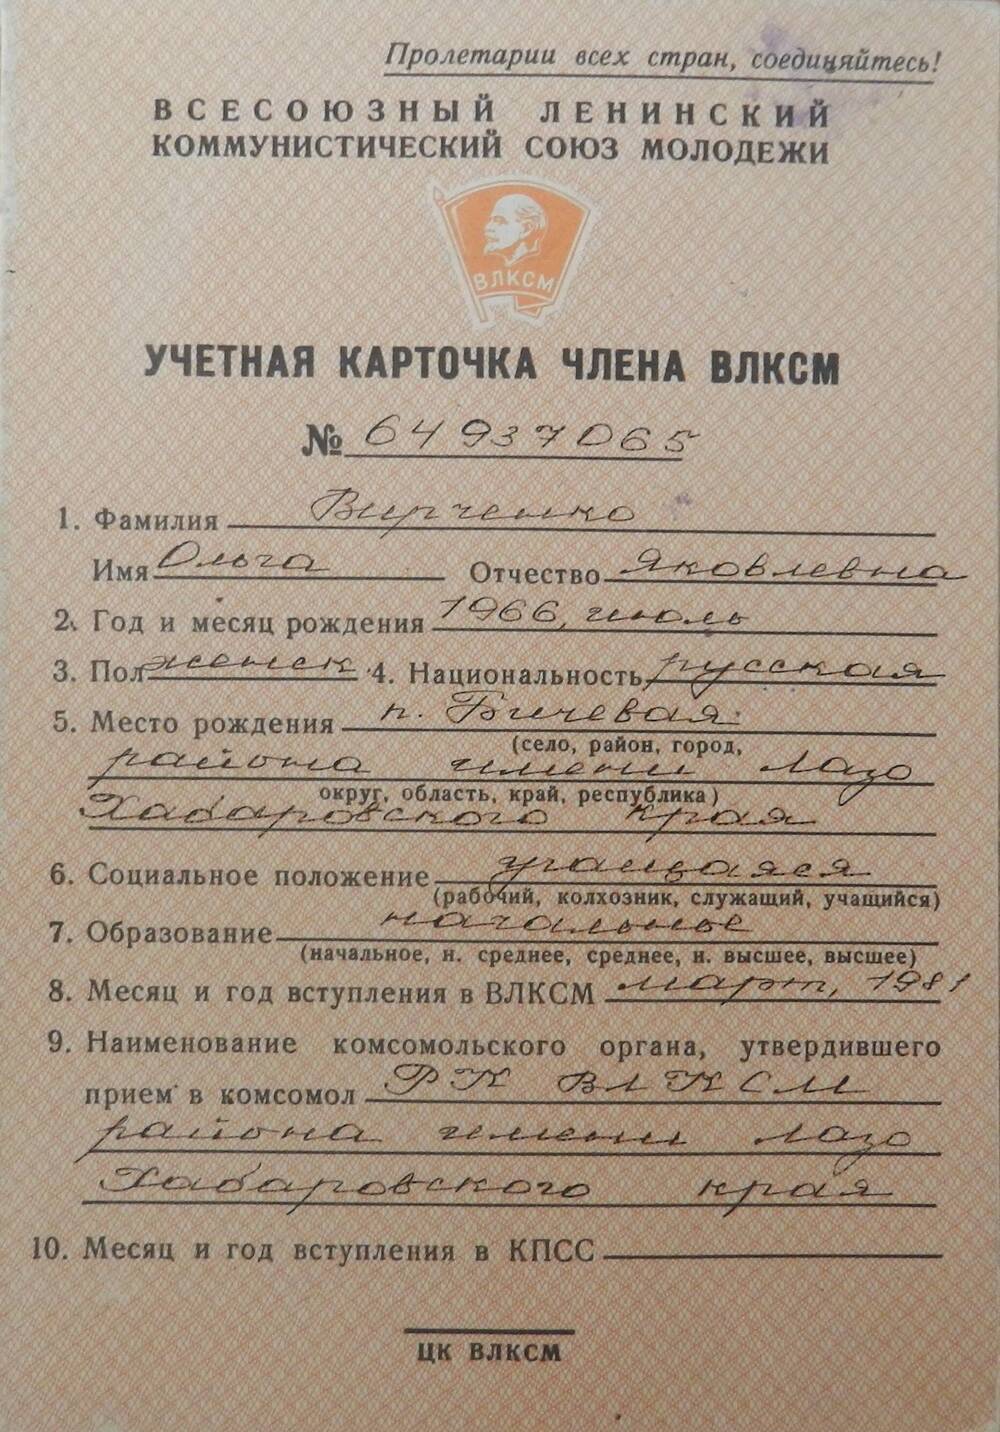 Пролетарии всех стран, соединяйтесь!
ВСЕСОЮЗНЫЙ ЛЕНИНСКИЙ
КОММУНИСТИЧЕСКИЙ СОЮЗ МОЛОДЕЖИ
ВЛКСМ
УЧЕТНАЯ КАРТОЧКА ЧЛЕНА ВЛКСМ
№ 64937065
1. Фамилия Вирченко
Имя Ольга Отчество Яковлевна
2. Год и месяц рождения 1966, июль
3. Пол женск 4. Национальность русская
5. Место рождения п. Бичевая
(село, район, город,
района имени Лазо
округ, область, край, республика)
Хабаровского края
6. Социальное положение учащаяся
(рабочий, колхозник, служащий, учащийся)
7. Образование начальное
(начальное, н. среднее, среднее, н. высшее, высшее)
8. Месяц и год вступления в ВЛКСМ март, 1981
9. Наименование комсомольского органа, утвердившего
прием в комсомол РК ВЛКСМ
района имени Лазо
Хабаровского края
10. Месяц и год вступления в КПСС
ЦК ВЛКСМ